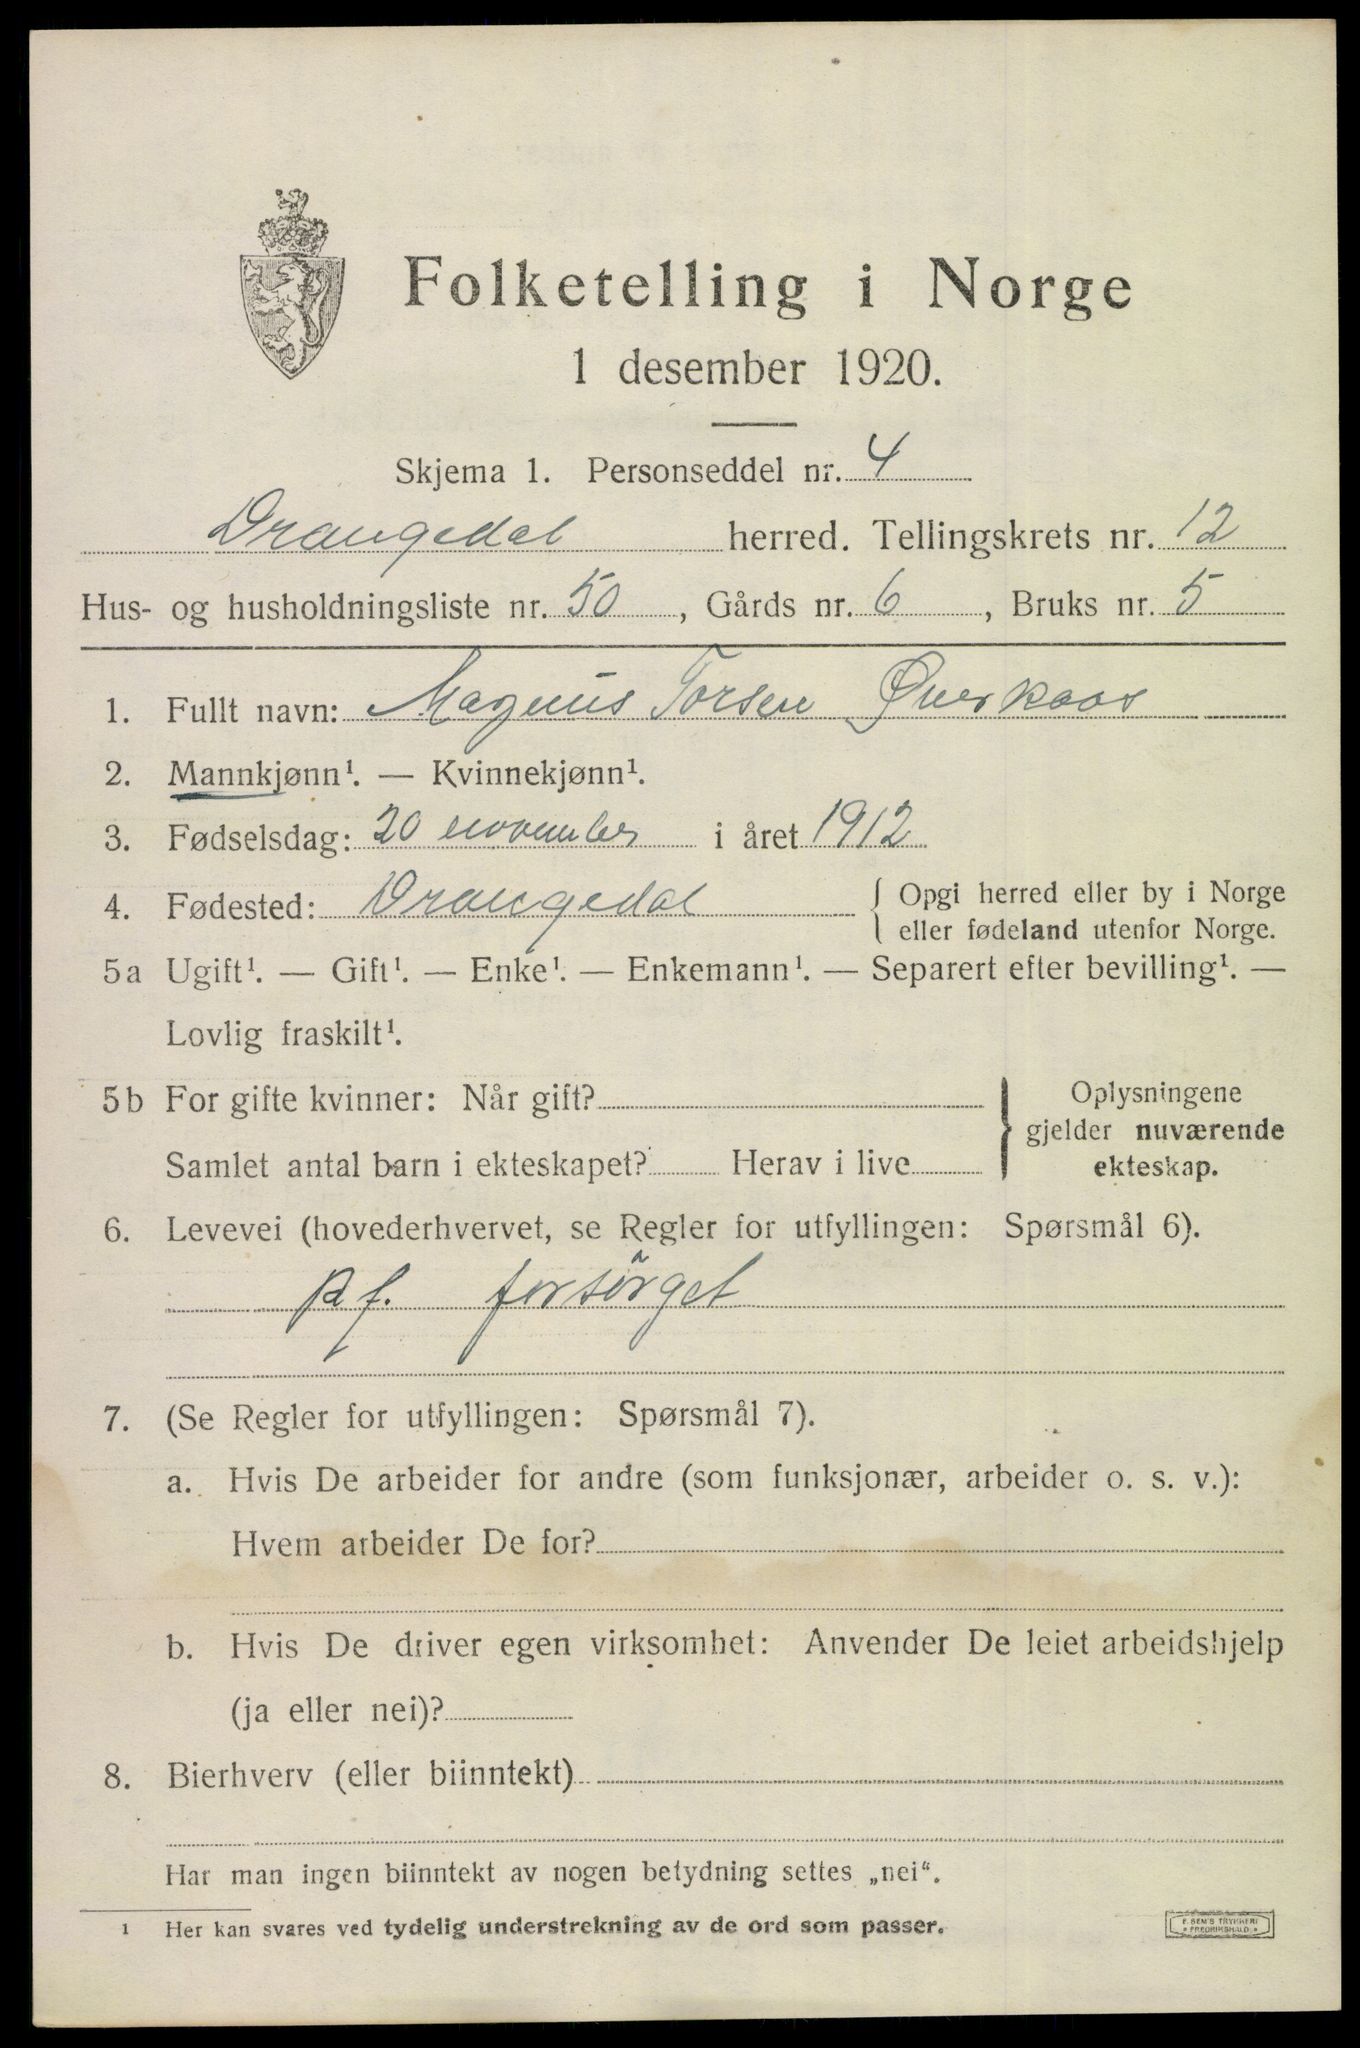 Folketelling i Norge
1 desember 1920.
Skjema 1. Personseddel nr. 4
Drangedal herred. Tellingskrets nr. 12
Hus- og husholdningsliste nr. 50, Gårds nr. 6, Bruks nr. 5
1. Fullt navn: Magnus Torsen Øverkaas
2. Mannkjønn¹. — Kvinnekjønn¹.
3. Fødselsdag: 20 november i året 1912
4. Fødested: Drangedal { Opgi herred eller by i Norge
eller fødeland utenfor Norge.
5a Ugift¹. — Gift¹. — Enke¹. — Enkemann¹. — Separert efter bevilling¹. —
Lovlig fraskilt¹.
5b For gifte kvinner: Når gift?
Samlet antal barn i ekteskapet? Herav i live
} Oplysningene
gjelder nuværende
ekteskap.
6. Levevei (hovederhvervet, se Regler for utfyllingen: Spørsmål 6).
f. forsörget
7. (Se Regler for utfyllingen: Spørsmål 7).
a. Hvis De arbeider for andre (som funksjonær, arbeider o. s. v.):
Hvem arbeider De for?
b. Hvis De driver egen virksomhet: Anvender De leiet arbeidshjelp
(ja eller nei)?
8. Bierhverv (eller biinntekt)
Har man ingen biinntekt av nogen betydning settes „nei“.
1 Her kan svares ved tydelig understrekning av de ord som passer.
F. SEM'S TRYKKERI
FREDRIKSHALD